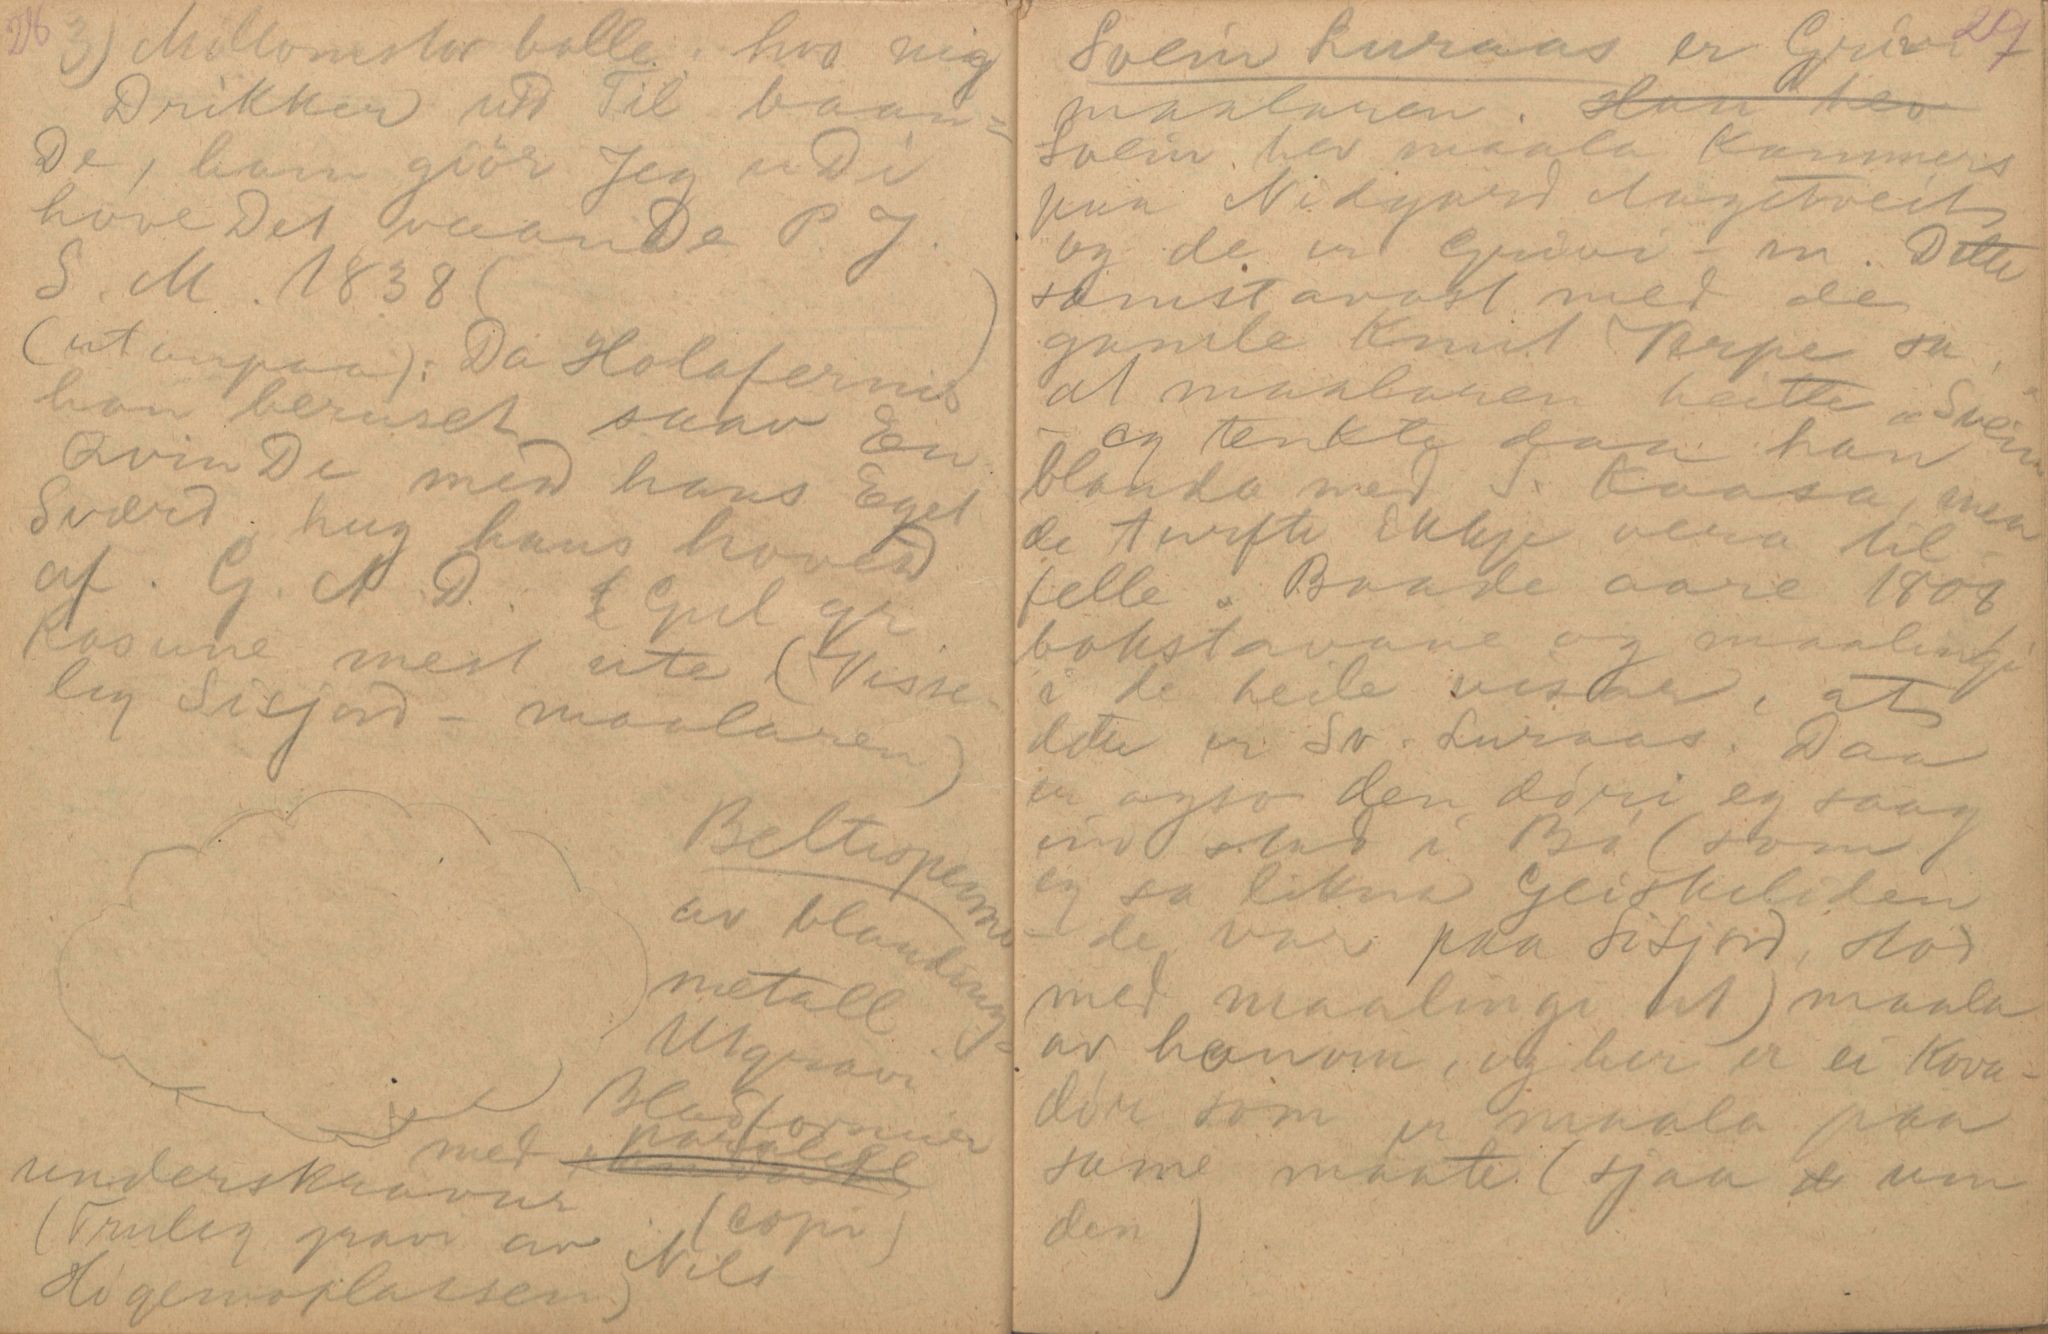 26
3) Millomstor bolle. hvo mig
Drikker ud Til baan=
De, ham giör Jeg uDi
hoveDet vaanDe P. J.
S. M. 1838 ( )
(utanpaa): Da Holofernis
han beruset saav En
QvinDe med hans Eget
Sværd hug hans hoved
af. G. A. D. Gul gr
Rosune mest ute (Visse-
leg Sisjord-maalaren)
Beltespenne
av blandings=
metall
Utgravi
Bladformer
med parallell
underskravur
(copi)
(Truleg gravi av Nils
Higemoplassen)
27
Svein Luraas er Grivi
maalaren. Han hev
Svein hev maala Kammers
paa Nidgard Aagetveit
og de er Grivi-m. Dette
samstavast med de
gamle Knut Karpe sa,
at maalaren heitte "Svein"
- eg tenkte daa han
blanda med S. Kaasa, men
de turfte ikkje vera til-
felle. Baade aare 1808
bokstavane og maalingi
i de heile visar, at
dette er Sv. Luraas. Daa
er ogso den döri eg saag
ein stad i Bö (som
eg sa likna Geiskeliden
- de var paa Sisjord, stod
med maalingi ut) maala
av honom, og her er ei Kova-
dör som er maala paa
same maate (sjaa um
den)